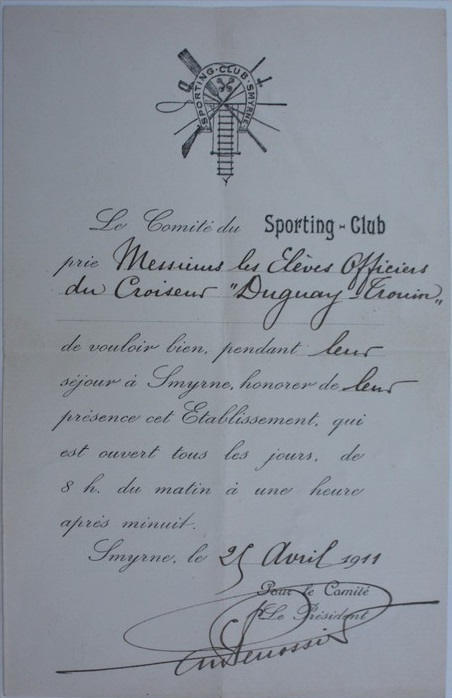 SPORTING·CLUB·SMYRNE
Le Comité du Sporting-Club
prie Messieurs les Elèves Officiers
du Croiseur "Duguay-Trouin"
de vouloir bien, pendant leur
séjour à Smyrne, honorer de leur
présence cet Etablissement, qui
est ouvert tous les jours, de
8 h. du matin à une heure
après minuit.
Smyrne, le 25 Avril 1911
Pour le Comité
Le Président